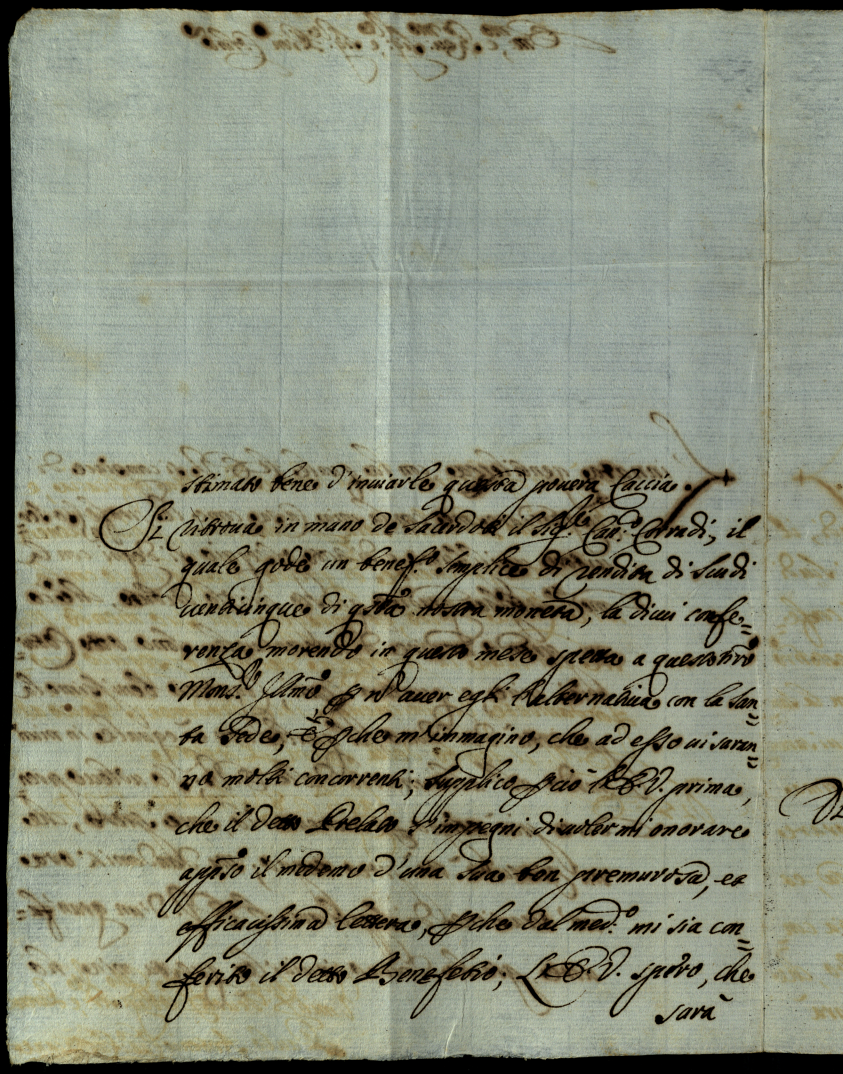 stimato bene d'inviarle questa povera Caccia.
Si ritrova in mano de Sacerdoti il Sig.r Can.co Corradi, il
quale gode un benef.o Simplice di rendita di Scudi
venticinque di q̃sta nostra moneta, la di cui confe=
renza morendo in questo mese spetta a questo ñro
Mons.r Illmo p nõ aver egli l'alternativa con la San=
ta Sede, et pche m'immagino, che ad esso vi saran=
no molti concorrenti; supplico pciò l'E.V. prima,
che il detto Prelato s'impegni di volermi onorare
app̃so il medemo d'una Sua ben premurosa, et
efficacissima lettera, pche dal med.o mi sia con=
ferito il detto Benefetio; L'E.V. spero, che
sarà